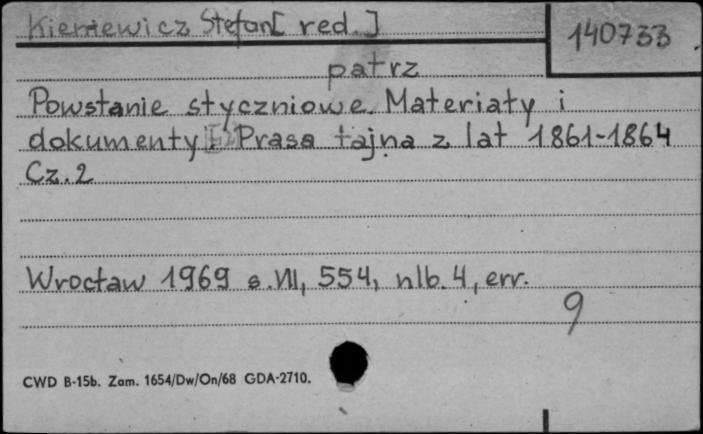 Kieniewicz Stefan [red.]
140733
patrz
Powstanie styczniowe. Materiały i
dokumenty. Prasa tajna z lat 1861-1864
Cz.2
Wrocław 1969 s. VII, 554, nlb. 4, err.
9
CWD B-15b. Zam. 1654/Dw/On/68 GDA-2710.